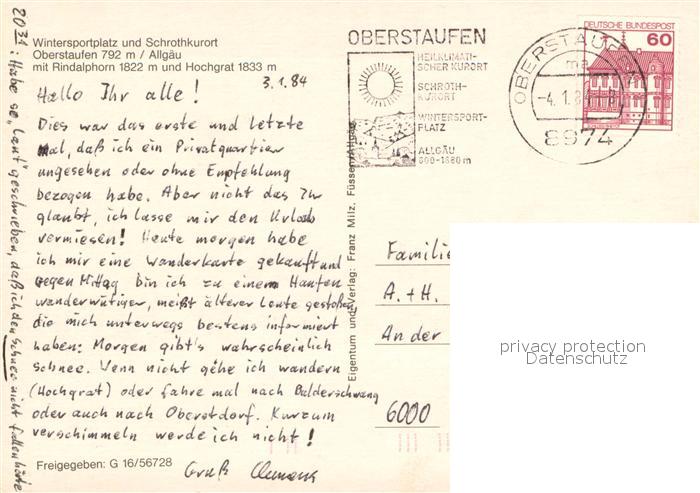 Wintersportplatz und Schrothkurort
Oberstaufen 792 m / Allgäu
mit Rindalphorn 1822 m und Hochgrat 1833 m
3.1.84
Hallo Ihr alle!
Dies war das erste und letzte
mal, daß ich ein Privatquartier
ungesehen oder ohne Empfehlung
bezogen habe. Aber nicht das Ihr
glaubt, ich lasse mir den Urlaub
vermiesen! Heute morgen habe
ich mir eine Wanderkarte gekauft und
gegen Mittag bin ich zu einem Haufen
wanderwütiger, meißt älterer Leute gestoßen,
die mich unterwegs bestens informiert
haben: Morgen gibt's wahrscheinlich
schnee. Wenn nicht gehe ich wandern
(Hochgrat) oder fahre mal nach Balderschwang
oder auch nach Oberstdorf. Kurzum
verschimmeln werde ich nicht!
Gruß Clemens
Freigegeben: G 16/56728
: Habe so „laut" geschrieben, daß ich den Schnee nicht fallen hörte
Eigentum und Verlag: Franz Milz, Füssen/Allgäu
OBERSTAUFEN
HEILKLIMATI-
SCHER KURORT
SCHROTH-
KURORT
WINTERSPORT-
PLATZ
ALLGÄU
600-1880 m
OBERSTAUF
ma
-4.1.8
8974
DEUTSCHE BUNDESPOST
60
Familie
A. + H.
An der
6000
privacy protection
Datenschutz